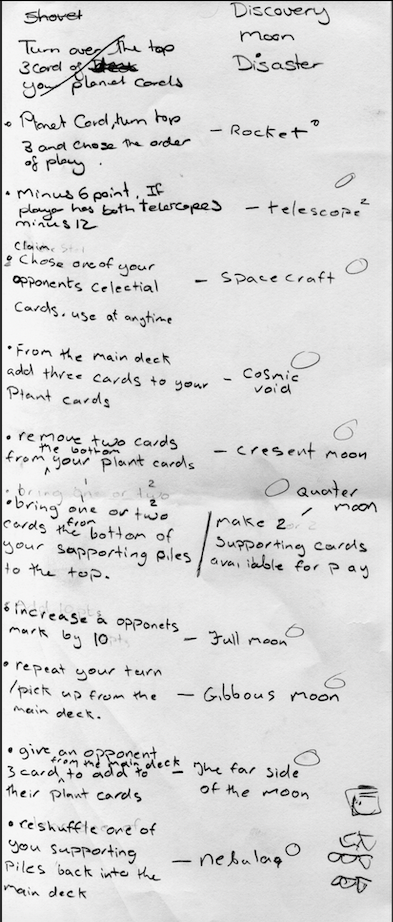 Shovel
Turn over the top
3 card of
you planet cards
Discovery
moon
Disaster
• Planet Card, turn top
3 and chose the order
of play.
– Rocket
• Minus 6 point, If
player has both telercopes
minus 12
– telescope 2
Claim
• Chose one of your
opponents celectial
Cards. use at anytime
– Space craft
• From the main deck
add three cards to your
Plant cards
– Cosmic
void
• remove two cards
the bottom
from your plant cards
– cresent moon
• bring one or two
1 2
• bring one or two
cards from
the bottom of
your sapporting piles
to the top.
quater
moon
/ make 2
supporting cards
available for pay
• increase a opponets
mark by 10
– Full moon
• repeat your turn
/pick up from the
main deck.
– Gibbous moon
• give an opponent
from the main deck
3 card to add to
their plant cards
– The far side
of the moon
• reshuffle one of
you supporting
piles back into the
main deck
– nebulaq